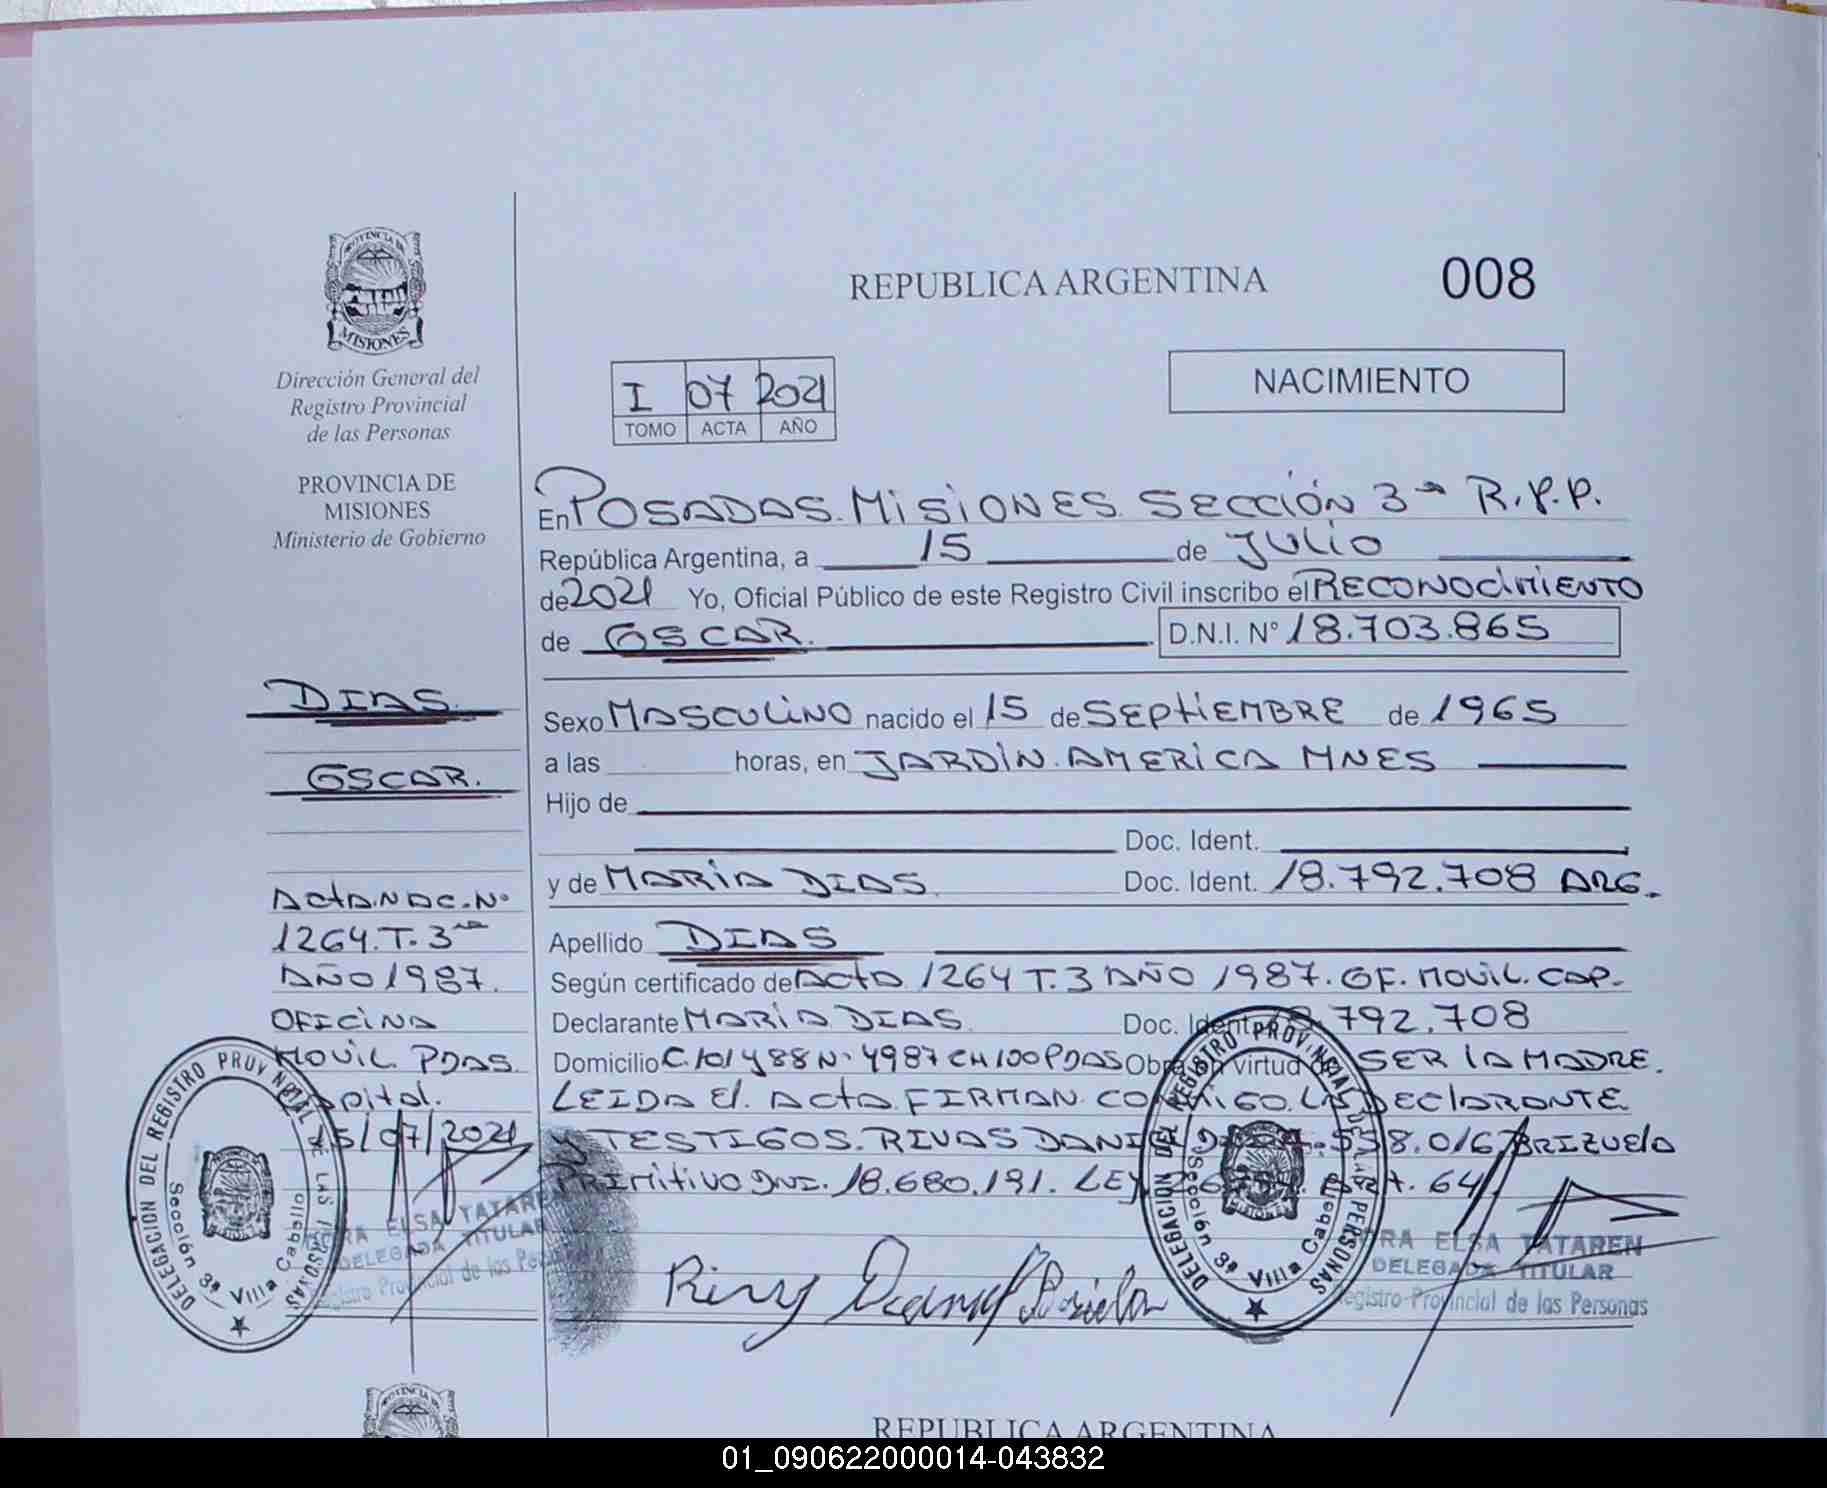 PROVINCIA DE
MISIONES
Dirección General del
Registro Provincial
de las Personas
PROVINCIA DE
MISIONES
Ministerio de Gobierno
DIAS.
OSCAR.
ACTA.NAC.Nº
1264.T.3ro
AÑO 1987.
OFICINA
MOVIL PDAS.
15/07/2021
REPUBLICA ARGENTINA
008
I 07 2021
TOMO ACTA AÑO
NACIMIENTO
En POSADAS. MISIONES. SECCIÓN 3ª R.P.P.
República Argentina, a 15 de JULIO
de 2021 Yo, Oficial Público de este Registro Civil inscribo el RECONOCIMIENTO
de OSCAR. D.N.I. N° 18.703.865
Sexo MASCULINO nacido el 15 de SEPTIEMBRE de 1965
a las horas, en JARDIN. AMERICA MNES
Hijo de
Doc. Ident.
y de MARIA DIAS. Doc. Ident. 18.792.708 ARG.
Apellido DIAS
Según certificado de ACTA 1264 T.3 AÑO 1987. OF. MOVIL. CAP.
Declarante MARIA DIAS. Doc. Ident. 18.792.708
Domicilio C.101 y 88 N. 4987 CH 100 PDAS Obra en virtud de SER LA MADRE.
LEIDA El. ACTA. FIRMAN. CONMIGO. LA DECLARANTE
Y TESTIGOS. RIVAS DANIEL BRIZUELA
PRIMITIVO DNI. 18.680.191. LEY ART. 64
DELEGACION DEL REGISTRO PROVINCIAL DE LAS PERSONAS
Sección 3ª Villa Cabello
ELSA TATAREN
DELEGADA TITULAR
Registro Provincial de las Personas
DELEGACION DEL REGISTRO PROVINCIAL DE LAS PERSONAS
Sección 3ª Villa Cabello
ELSA TATAREN
DELEGADA TITULAR
Registro Provincial de las Personas
PROVINCIA DE
REPUBLICA ARGENTINA
01_090622000014-043832